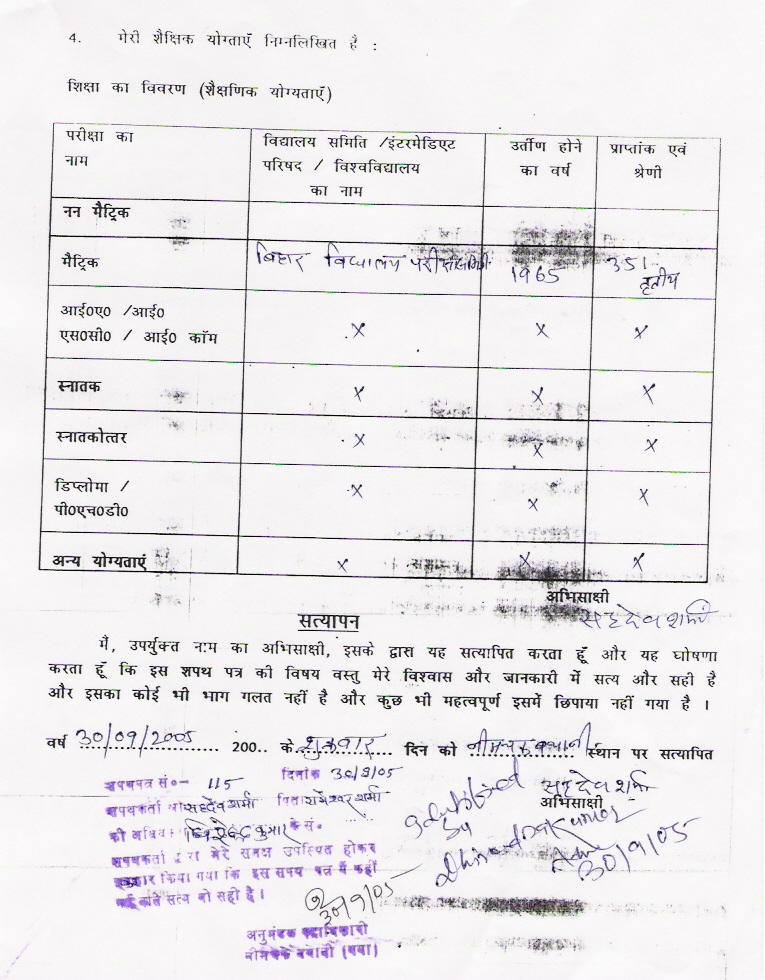 4. मेरी शैक्षिक योग्ताएँ निम्नलिखित है :
शिक्षा का विवरण (शैक्षणिक योग्यताएँ)
परीक्षा का नाम
विद्यालय समिति /इंटरमेडिएट परिषद / विश्वविद्यालय का नाम
उर्तीण होने का वर्ष
प्राप्तांक एवं श्रेणी
नन मैट्रिक
मैट्रिक बिहार विद्यालय 1965 351 तृतीय
आई०ए० /आई० एस०सी० / आई० कॉम x x x
स्नातक x x x
स्नातकोत्तर x x x
डिप्लोमा / पी०एच०डी० x x x
अन्य योग्यताएं x x x
अभिसाक्षी
सहदेव शर्मा
सत्यापन
मैं, उपर्युक्त नाम का अभिसाक्षी, इसके द्वारा यह सत्यापित करता हूँ और यह घोषणा
करता हूँ कि इस शपथ पत्र की विषय वस्तु मेरे विश्वास और जानकारी में सत्य और सही है
और इसका कोई भी भाग गलत नहीं है और कुछ भी महत्वपूर्ण इसमें छिपाया नहीं गया है ।
वर्ष 30/09/2005 200.. के शुक्रवार दिन को स्थान पर सत्यापित
शपथपत्र सं०- 115 दिनांक 30/9/05
सहदेव शर्मा
अभिसाक्षी
शपथकर्ता सहदेव शर्मा पिता
की के सं.
शपथकर्ता मेरे समक्ष उपस्थित होकर
किया गया कि इस पत्र में
सत्य सही है ।
30/9/05
30/9/05